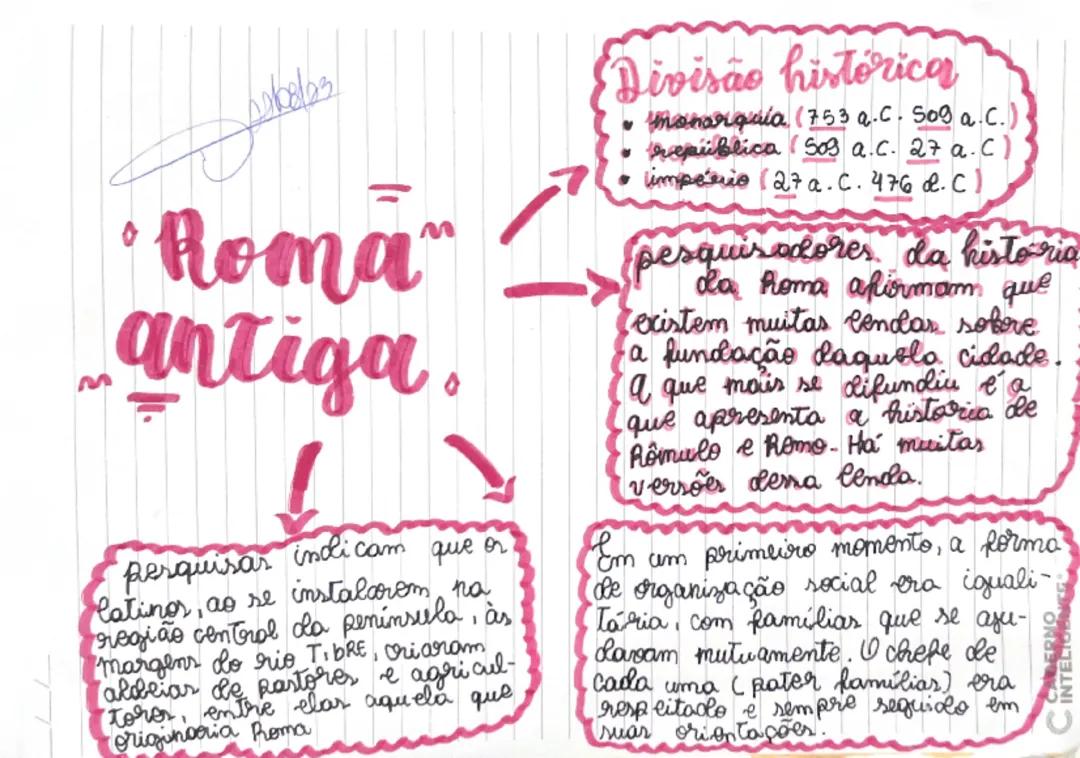 Roma
antiga
Divisão histórica
• monarquia (753 a.C. 509 a.C.)
• república (509 a.C. 27 a.C)
• império (27 a.C. 476 d.C)
pesquisadores da história
da Roma afirmam que
existem muitas lendas sobre
a fundação daquela cidade.
A que mais se difundiu é a
que apresenta a historia de
Rômulo e Remo. Há muitas
versões dessa lenda.
pesquisas indicam que os
latinos, ao se instalarem na
região central da península, às
margens do rio TIBRE, criaram
aldeias de pastores e agricul-
tores, entre elas aquela que
originaria Roma
Em um primeiro momento, a forma
de organização social era iguali-
tária, com famílias que se aju-
davam mutuamente. O chefe de
cada uma (pater famílias) era
respeitado e sempre seguido em
suas orientações.
CADERNO
INTELIGENTE®